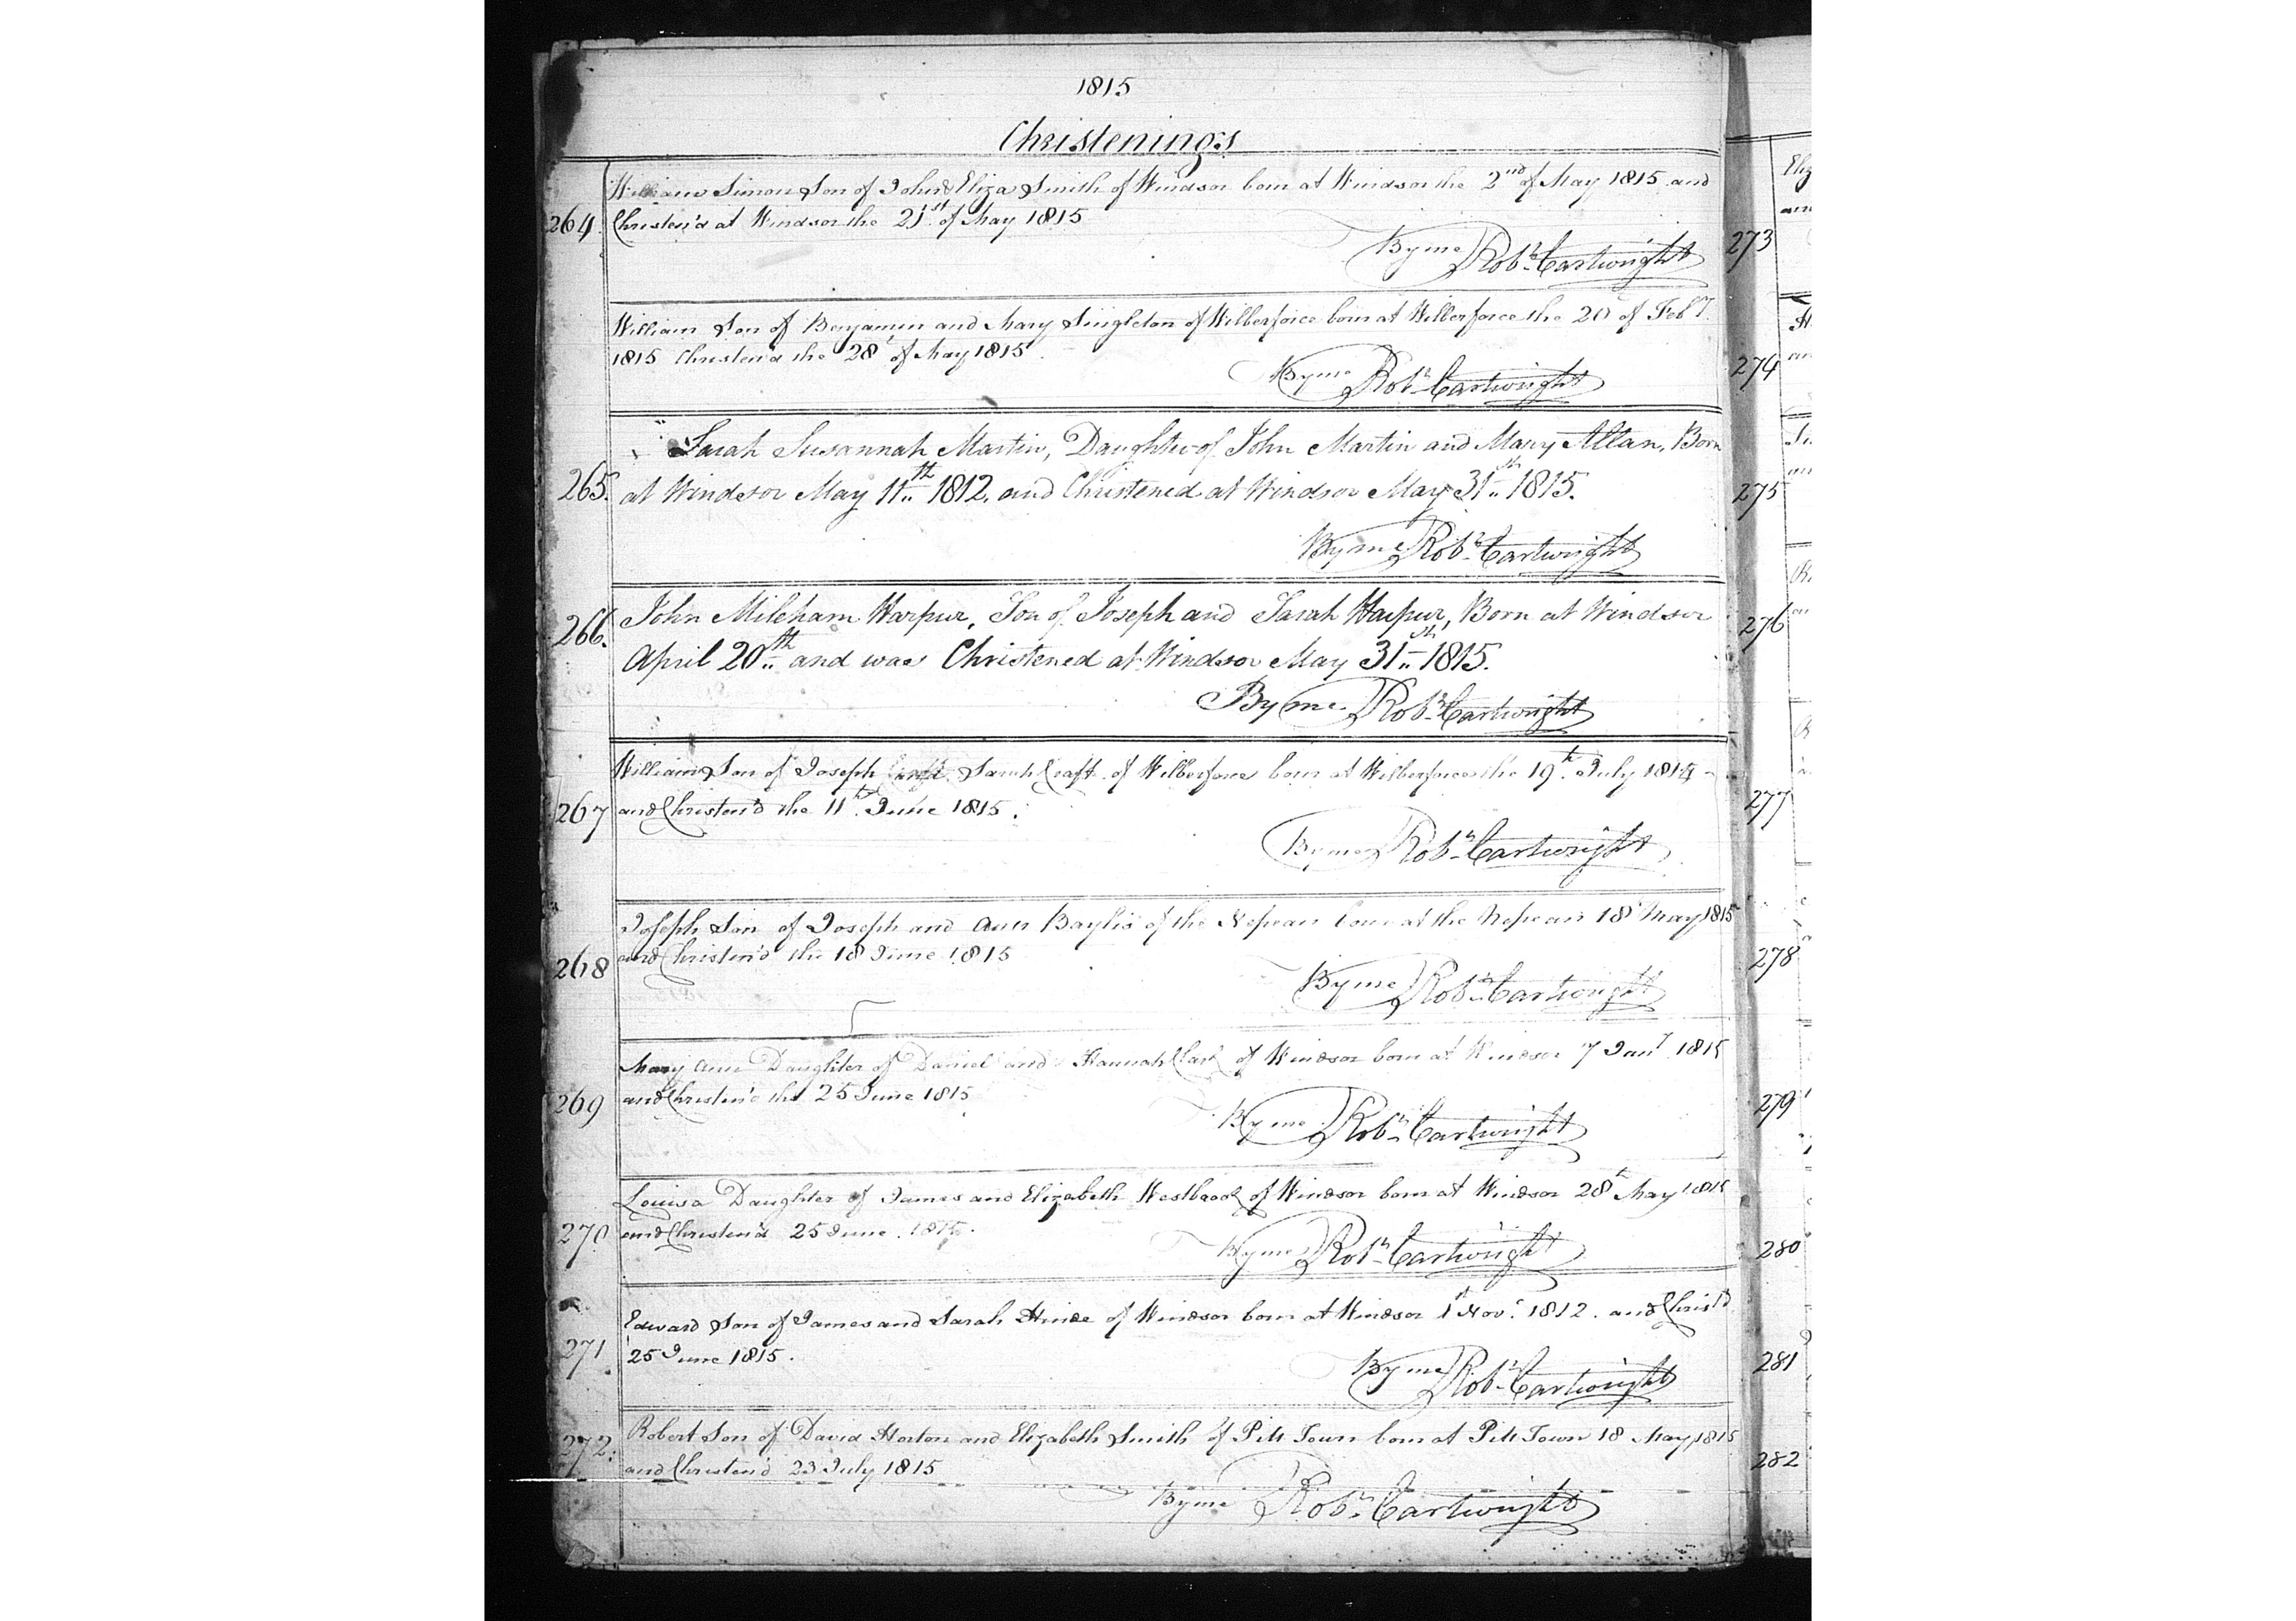 1815
Christenings
William Simon Son of John & Eliza Smith of Windsor born at Windsor the 2nd of May 1815 and
264. Christen'd at Windsor the 21st of May 1815
By me Robt. Cartwright
William Son of Benjamin and Mary Singleton of Wilberforce born at Wilberforce the 20 of Feby.
1815 Christen'd the 28 of May 1815
By me Robt. Cartwright
Sarah Susannah Martin, Daughter of John Martin and Mary Allan, Born
265. at Windsor May 11th 1812. and Christened at Windsor May 31st 1815.
By me Robt. Cartwright
266. John Mileham Harpur, Son of Joseph and Sarah Harpur, Born at Windsor
April 20th and was Christened at Windsor May 31st 1815.
By me Robt. Cartwright
William Son of Joseph Sarah Craft of Wilberforce born at Wilberforce the 19th July 1814
267 and Christen'd the 11th June 1815.
By me Robt. Cartwright
Joseph Son of Joseph and Ann Baylis of the Nepean born at the Nepean 18 May 1815
268 and Christen'd the 18 June 1815
By me Robt. Cartwright
Mary Ann Daughter of Daniel and Hannah of Windsor born at Windsor 7 Jany 1815
269 and Christen'd the 25 June 1815
By me Robt. Cartwright
Louisa Daughter of James and Elizabeth Westbrook of Windsor born at Windsor 28th May 1815
270 and Christen'd 25 June. 1815.
By me Robt. Cartwright
Edward Son of James and Sarah Hinde of Windsor born at Windsor 1st Nov. 1812. and Christ'd
271. 25 June 1815.
By me Robt. Cartwright
272. Robert Son of David Horton and Elizabeth Smith of Pitt Town born at Pitt Town 18 May 1815
and Christen'd 23 July 1815
By me Robt. Cartwright
273
274
275
276
277
278
279
280
281
282